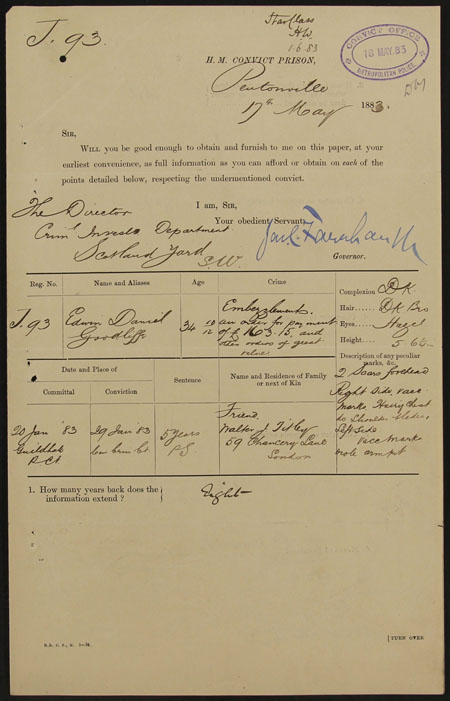 J. 93.
Star Class
HW
1.6.83
CONVICT OFFICE
18 MAY. 83
METROPOLITAN POLICE
H. M. CONVICT PRISON,
Pentonville
17th May 1883.
SIR,
WILL you be good enough to obtain and furnish to me on this paper, at your
earliest convenience, as full information as you can afford or obtain on each of the
points detailed below, respecting the undermentioned convict.
I am, SIR,
The Director
Your obedient Servant,
Criml Investn Department
Scotland Yard
S.W.
Governor.
Reg. No.
Name and Aliases
Age
Crime
J.93
Edwin Daniel
Goodliffe
34 10/12
Embezzlement.
an order for payment
of £163.15. and
other orders of great
value
Complexion DK
Hair DK Bro
Eyes Hazel
Height 5 6
Description of any peculiar
marks, &c.
2 Scars forehead
Right Side, vacc
marks Hairy Chest
do Shoulder blades,
Left Side
Vacc Marks
mole armpit
Date and Place of
Committal
Conviction
Sentence
Name and Residence of Family
or next of Kin
20 Jan '83
Guildhall
P. Ct
29 Jan '83
Cen Crim Ct.
5 years
PS
Friend.
Walter J. Titley
59 Chancery Lane
London
1. How many years back does the
information extend ?
Eight
[TURN OVER